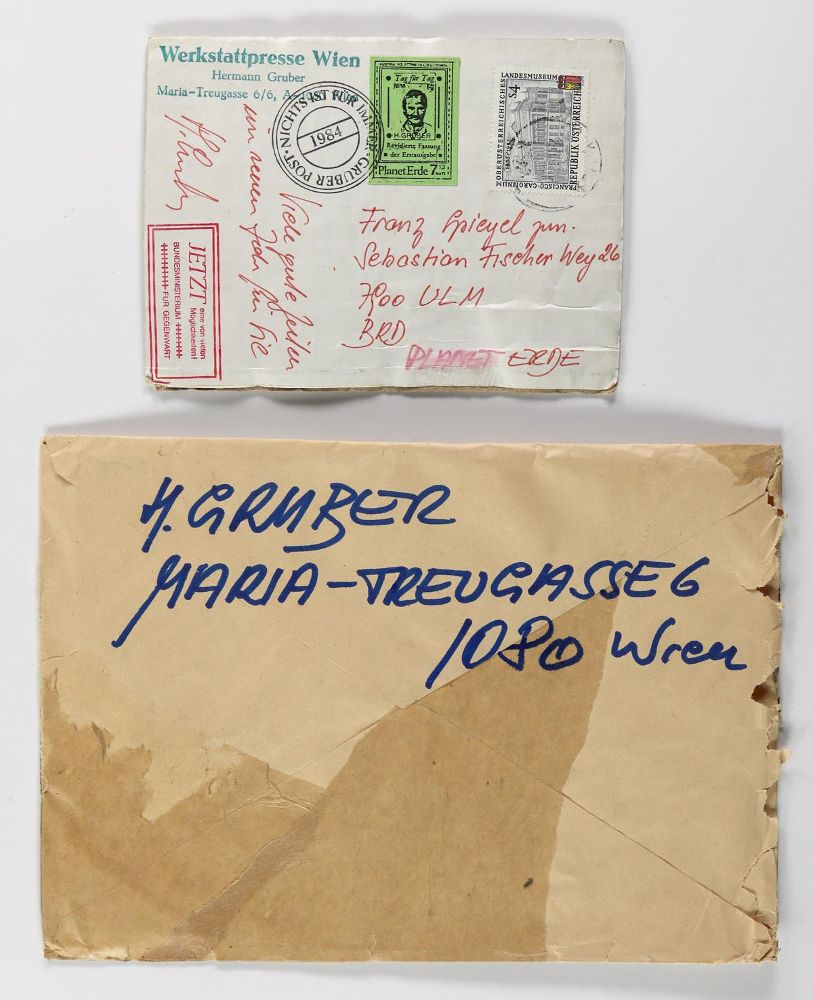 Werkstattpresse Wien
Hermann Gruber
Maria-Treugasse 6/6, A-1080 Wien
NICHTS IST FÜR IMMER · GRUBER POST ·
1984
Tag für Tag
H. GRUBER
Revidierte Fassung
der Erstausgabe
Planet Erde 7
OBERÖSTERREICHISCHES LANDESMUSEUM
S4
FRANCISCO-CAROLINUM
REPUBLIK ÖSTERREICH
Viele gute Zeiten
im neuen Jahr für Sie
JETZT eine von vielen
Möglichkeiten!
BUNDESMINISTERIUM
FÜR GEGENWART
Franz Spiegel jun.
Sebastian Fischer Weg 26
7900 ULM
BRD
PLANET ERDE
H. GRUBER
MARIA-TREUGASSE 6
1080 Wien